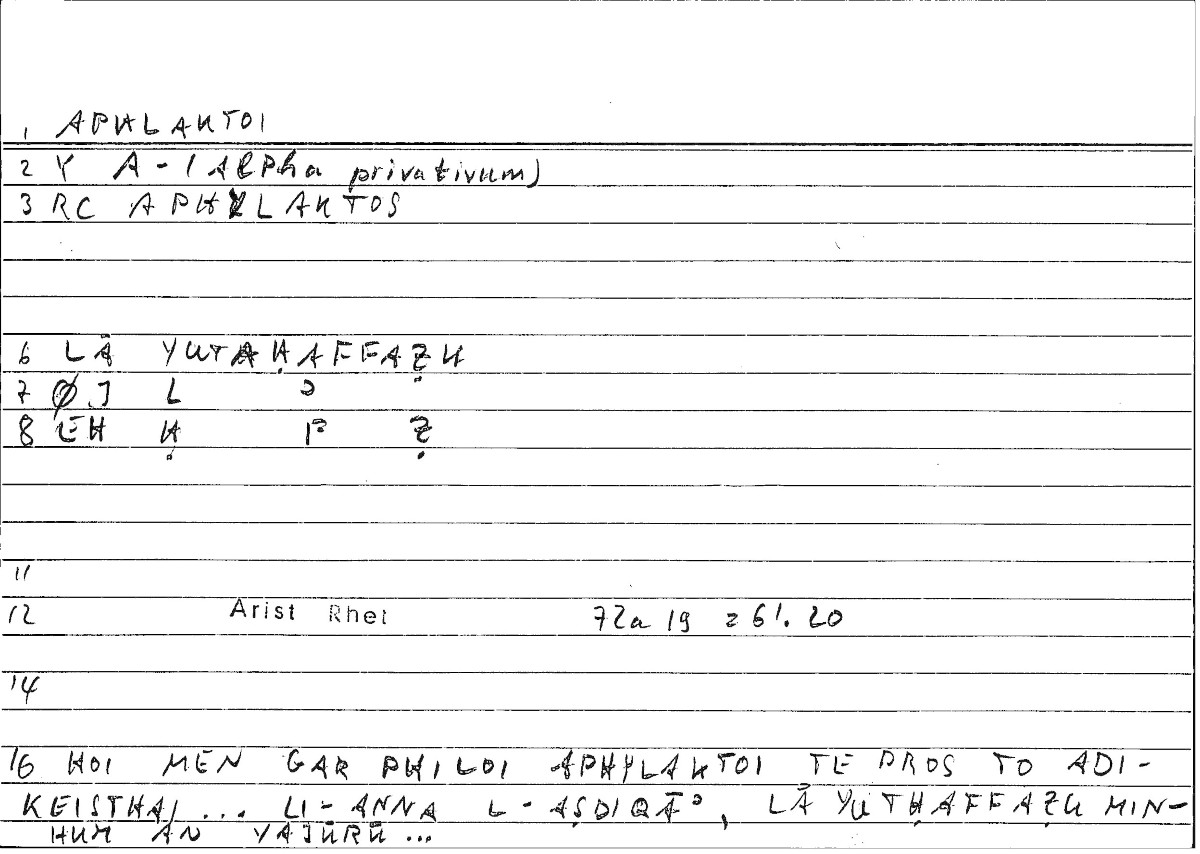 1 APHLAKTOI
2 Y A-(Alpha privativum)
3 RC APHYLAKTOS
6 LĀ YUTAḤAFFAẒU
7 ØJ L ʾ
8 EH Ḥ F Ẓ
11
12 Arist Rhet 72a 19 = 61. 20
14
16 HOI MEN GAR PHILOI APHYLAKTOI TE PROS TO ADI-
KEISTHAI ... LI-ANNA L-AṢDIQĀʾ, LĀ YUTḤAFFAẒU MIN-
HUM AN YAJŪRŪ ...